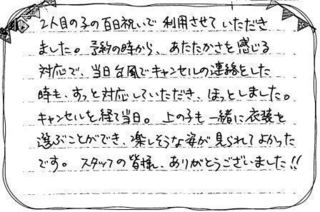 2人目の子の百日祝いで利用させていただき
ました。予約の時から、あたたかさを感じる
対応で、当日台風でキャンセルの連絡をした
時も、すっと対応していただき、ほっとしました。
キャンセルを経て当日。上の子も一緒に衣装を
選ぶことができ、楽しそうな姿が見られてよかった
です。スタッフの皆様、ありがとうございました!!